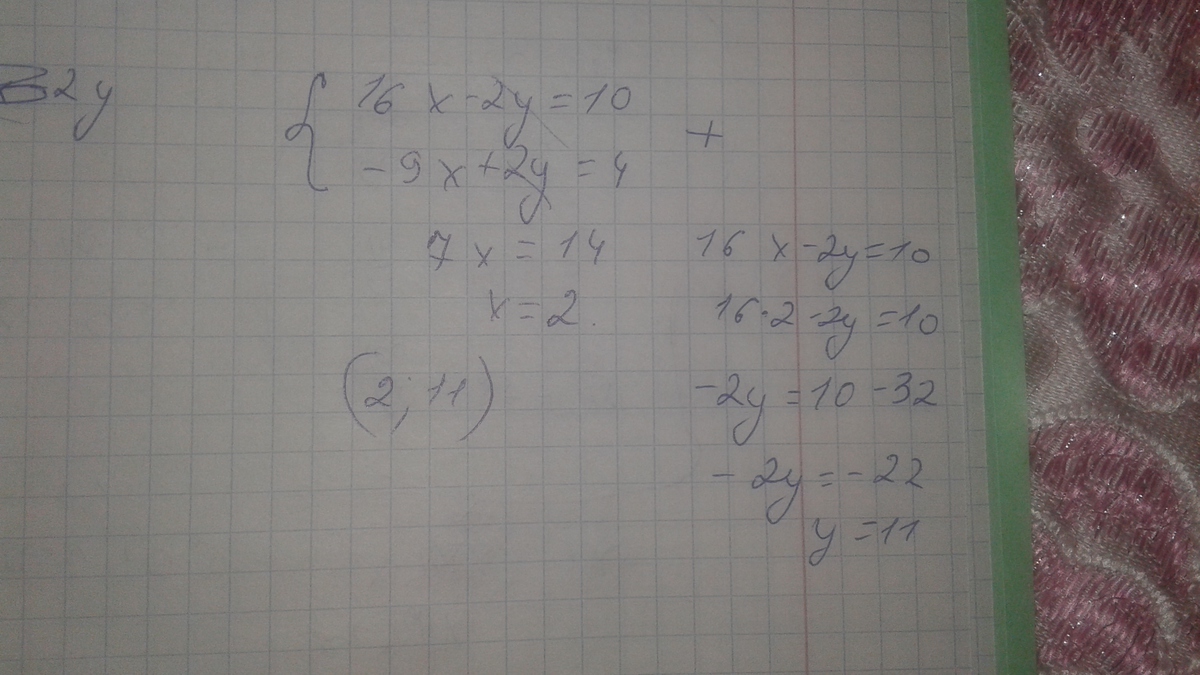 2y
16x-2y=10
-9x+2y=4
+
7x=14
x=2.
(2;11)
16x-2y=10
16·2-2y=10
-2y=10-32
-2y=-22
y=11